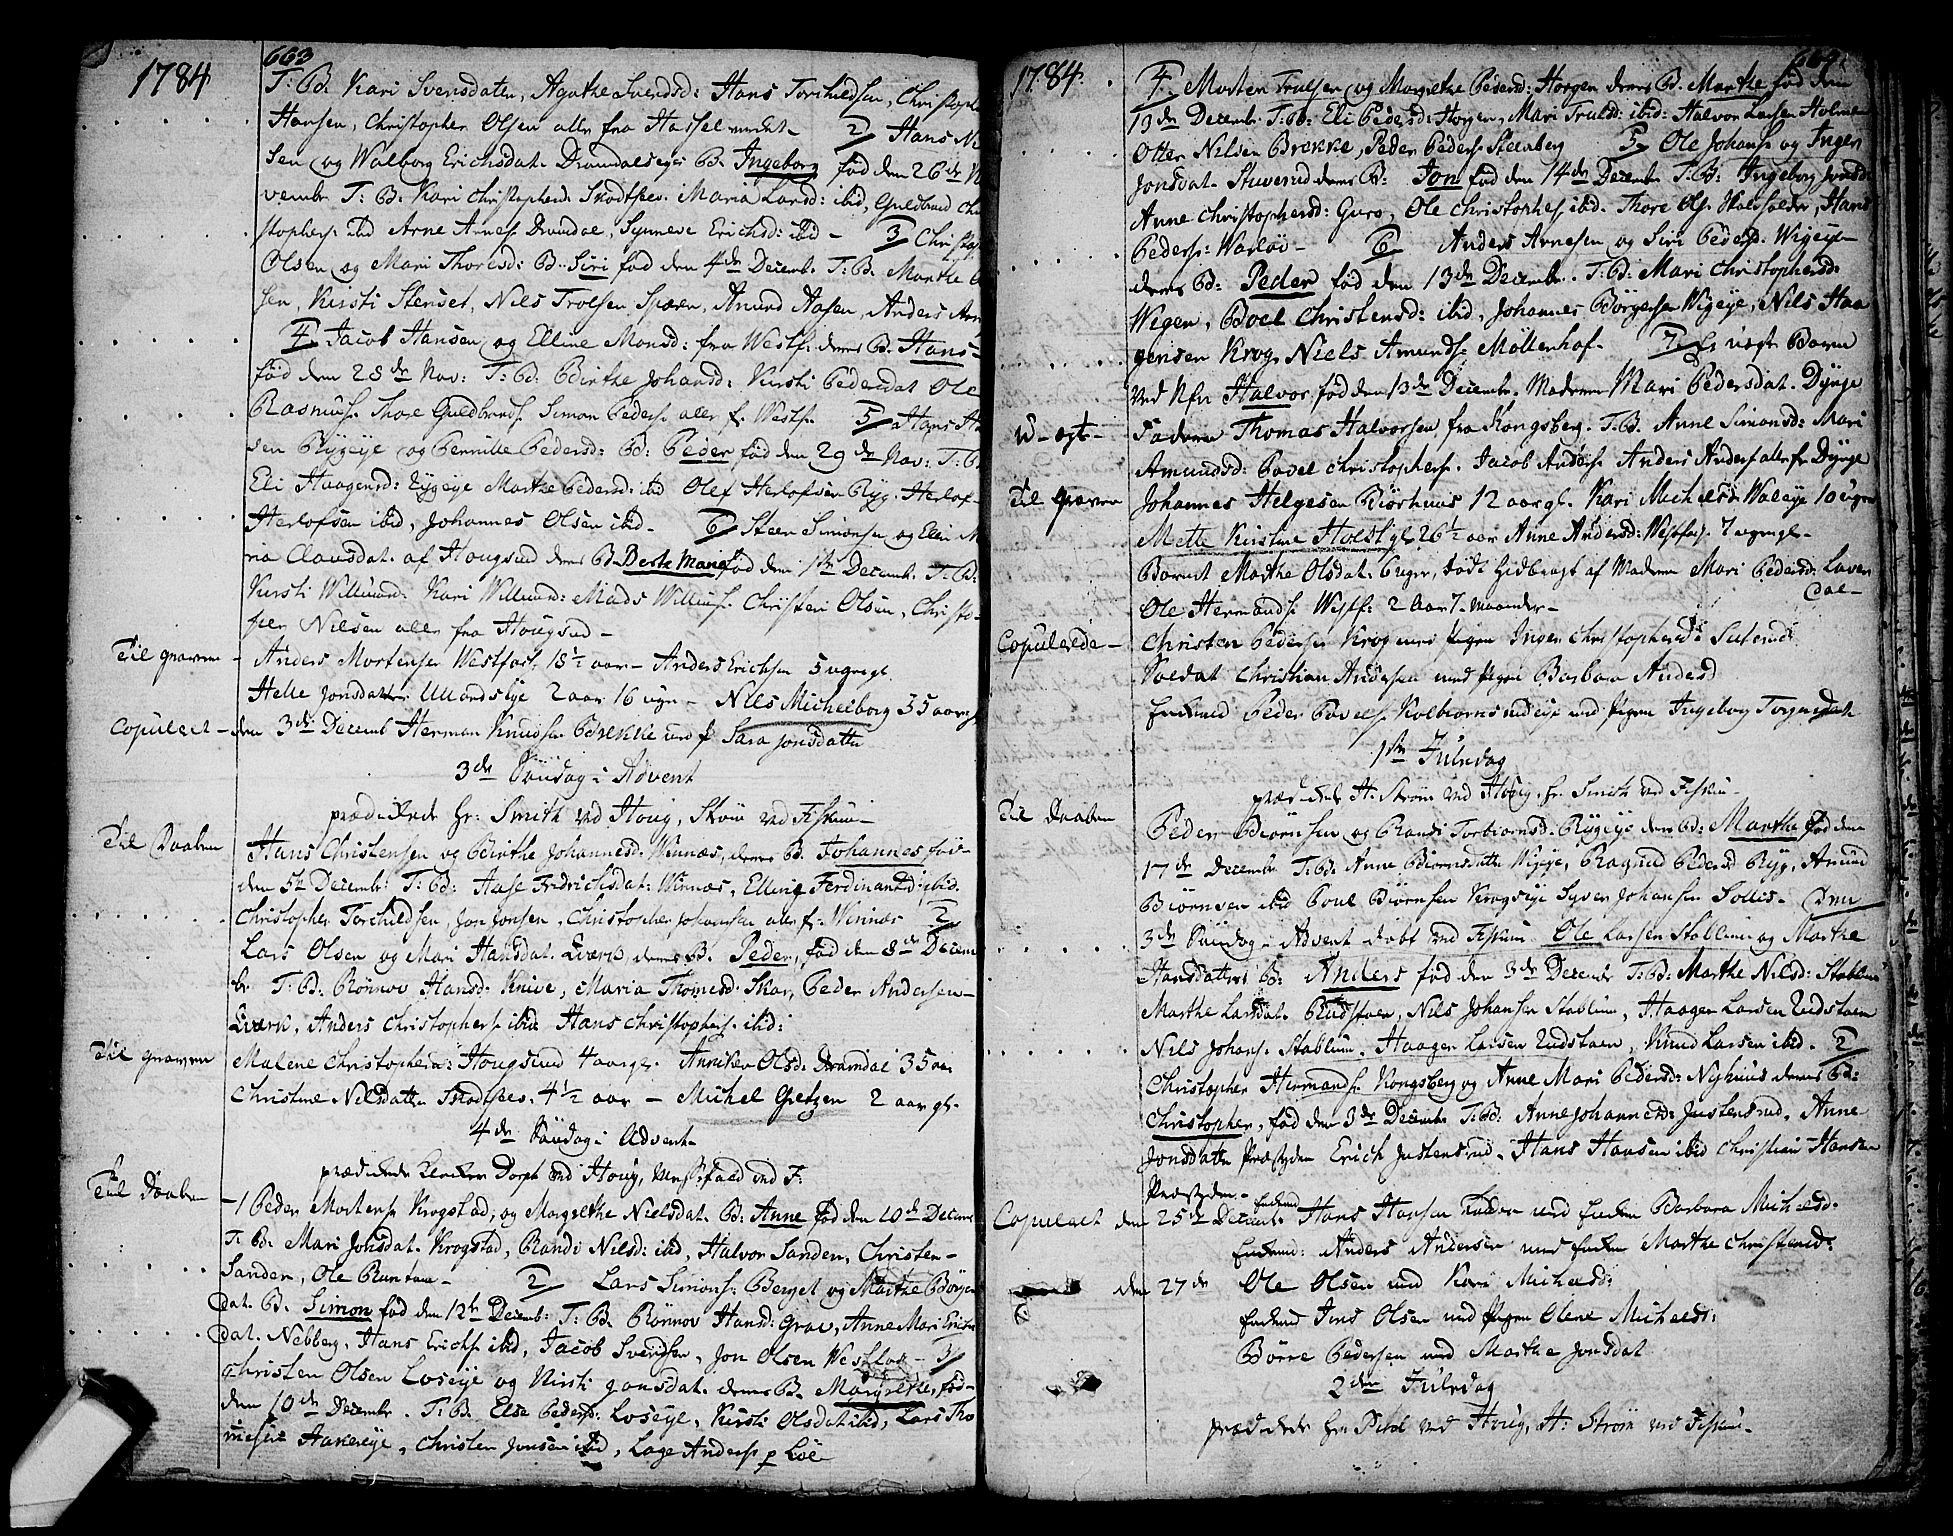 1784
663
T: B: Kari Svensdatter, Agathe Svendsd: Hans Torchildsen, Christoph
Hansen, Christopher Olsen alle fra Hassel 2/ Hans Ni
sen og Walborg Erichsdat. Dramdalseye B. Ingeborg fød den 26de N
vembr T: B: Kari Christophersd: Skodtsev. Maria Larsd: ibid, Guldbrand Chri
stophers ibid Arne Arnes Dramdal, Synneve Erichsd: ibid - 3/ Christoph
Olsen og Mari Thoresd: B. Siri fød den 4de Decemb. T: B. Marthe
sen, Kirsti Stenset, Nils Trolsen Spæren, Amund Aasen, Anders Arn
4/ Jacob Hansen og Elline Monsd: fra Westf: deres B. Hans
fød den 28de Nov: T: B: Birthe Johansd: Kirsti Pedersdat Ole
Rasmus. Thore Guldbrands. Simon Peders alle f. Westf. 5/ Hans H
sen Rygeye og Pernille Pedersd: B: Peder fød den 29de Nov: T: B
Eli Haagensd: Rygeye Marthe Pedersd: ibid Olef Herlofsen Ryg. Herlof
Herlofsen ibid, Johannes Olsen ibid - 6/ Steen Simonsen og Ellen M
ria Clausdat. af Hougsund deres B. Berte Maria fød den 1ste Decemb. T: B:
Kirsti Willumd: Kari Willumd: Mads Willums. Christen Olsen, Christo-
pher Nilsen alle fra Hougsund -
Til graven - Anders Mortensen Westfos. 18½ aar - Anders Erichsen 5 ugergl.
Helle Jonsdatter Ullandseye 2 aar 16 uger - Nils Michelborg 35 aar gl
Copuleret - den 3de Decemb Herman Knuds. Brekke med p. Sara Jonsdatter
3de Søndag i Advent
prædikede Hr: Smith ved Houg, Strøm ved Fiskum -
Til Daaben Hans Christensen og Birthe Johannesd: Winnæs, deres B. Johannes fød-
den 5te Decembr: T: B: Aase Fridrichsdat: Winnæs, Elling Ferdinands: ibid.
Christopher Torchildsen, Jon Jonsen, Christopher Johansen alle f. Winnæs 2/
Lars Olsen og Mari Hansdat. Lværk, deres B. Peder, fød den 8de Decem
br T: B: Rønnov Hansd: Knive, Maria Thomesd: Skar, Peder Andersen-
Lværk, Anders Christophers ibid Hans Christophers. ibid:
Til graven Malene Christophersd: Hougsund 4 aargl. Anniken Olsd: Dramdal 35 aar
Christine Nilsdatter Skodsev. 4½ aar - Michel Gretzen 2 aar gl.
4de Søndag i Advent -
prædikede Dorph ved Houg, ved F:
Til Daaben -1 Peder Mortens. Krogstad, og Margrethe Nielsdat. B. Anne fød den 10de Decemb
T: B: Mari Johsdat. Krogstad, Randi Nilsd: ibid, Halvor Sanden, Christen-
Sanden, Ole Runtom - 2/ Lars Simons. Berget og Marthe Børge
dat. B. Simon fød den 12te Decemb: T: B. Rønnov Hansd: Grav, Anne Mari Erichs
dat. Nebberg, Hans Erichs. ibid, Jacob Svendsen, Jon Olsen Westfos - 3/
Christen Olsen Loseye og Kirsti Jonsdat. deres B. Margrethe, fød-
den 10de Decembr. T: B. Else Pedersd: Loseye, Kirsti Olsdat ibid, Lars Tho
mesen Aakereye, Christen Jonsen ibid, Lage Anders. p. Loe
1784.
664.
4/ Morten Truelsen og Margrethe Pedersd: Horgen deres B. Marthe fød den
13de Decembr T: B: Eli Pedersd: Horgen, Mari Trulsd: ibid: Halvor Larsen Holme
Otter Nilsen Brekke, Peder Peders. Steenberg 5/ Ole Johans. og Inger
Jonsdat. Stuverud deres B: Jon fød den 14de Decembr T: B: Ingeborg Jonsd:
Anne Christophersd: Guro, Ole Christophes. ibid. Thore Ols. Hals, Hans
Peders: Warløs - 6/ Anders Arnesen og Siri Peders. Wigeye-
deres B: Peder fød den 13de Decembr. T: B: Mari Christophersd:
Wegen, Boel Christensd: ibid, Johannes Børgesen Wigeye, Nils Haa
gensen Krog, Niels Amunds. Møllenhof - 7/ Et uægt Barn
ved Nfn Halvor, fød den 13de Decembr. Moderen Mari Pedersdat. Dynge
U-egt - Faderen Thomas Halvorsen, fra Kongsberg. T: B. Anne Simonsd: Mari
Amundsd: Povel Christophers. Jacob Anders. Anders Anders. alle fr Dynge
Til graven Johannes Helgesen Biørhuus 12 aar gl. Kari Michelsd: Waleye 10 uger
Mette Kirstine Holst gl. 26½ aar Anne Andersd: Westfos. 7 ugergl-
Barnet Marthe Olsdat. 6 uger, dødt hidbragt af Moderen Mari Pedersd: Laver
dal -
Ole Hermands. Westf: 2 Aar 7. maaneder -
Copulerede - Christen Pedersen Krog med pigen Inger Christophersd:
Soldat Christian Andersen med pigen Barbara Andersd
Enkemd Peder Povels. Kolbiørnsrudeye med Pigen Ingeborg Torgersdat.
1ste Juledag
prædikede H. Strøm ved Houg, Hr. Smith ved Fiskum -
Til Daaben Peder Biørnsen og Randi Torbiørnsd. Rygeye deres B: Marthe fød den
17de Decembr T: B. Anne Biørnsdatter Wigeye, Ragnild Pedersd Ryg, Amund
Biørnsen ibid Poul Biørnsen Krogseye Syver Johansen Sollis - Den
3de Søndag i Advent døbt ved Fiskum. Ole Larsen Stablum og Marthe
Hansdatters B: Anders fød den 3de Decembr T: B: Marthe Nilsd: Stablum
Marthe Larsdat. Rudstøen, Nils Johansen Stablum, Haagen Larsen Rudstøen
Nils Johans. Stablum. Haagen Larsen Rudstøen, Knud Larsen ibid. 2/
Christopher Hermands. Kongsberg og Anne Mari Pedersd: Nyhuus deres B:
Christopher, fød den 3de Decembr T: B: Anne Johannesd: Justensrud, Anne
Jonsdatter Præstyden Erich Justensrud. Hans Hansen ibid Christian Hansen
Præstyden -
Copuleret den 25de Decemb. Enkemd Hans Hansen med Enken Barbara Michelsd.
Enkemd: Anders Andersen med Enken Marthe Christensd:
den 27de Ole Olsen med Kari Michelsd:
Enkemd Jens Olsen med Pigen Olene Michelsd:
Børre Pedersen med Marthe Jonsdat
2den Juledag
prædikede Hr ved Houg, H: Strøm ved Fiskum -